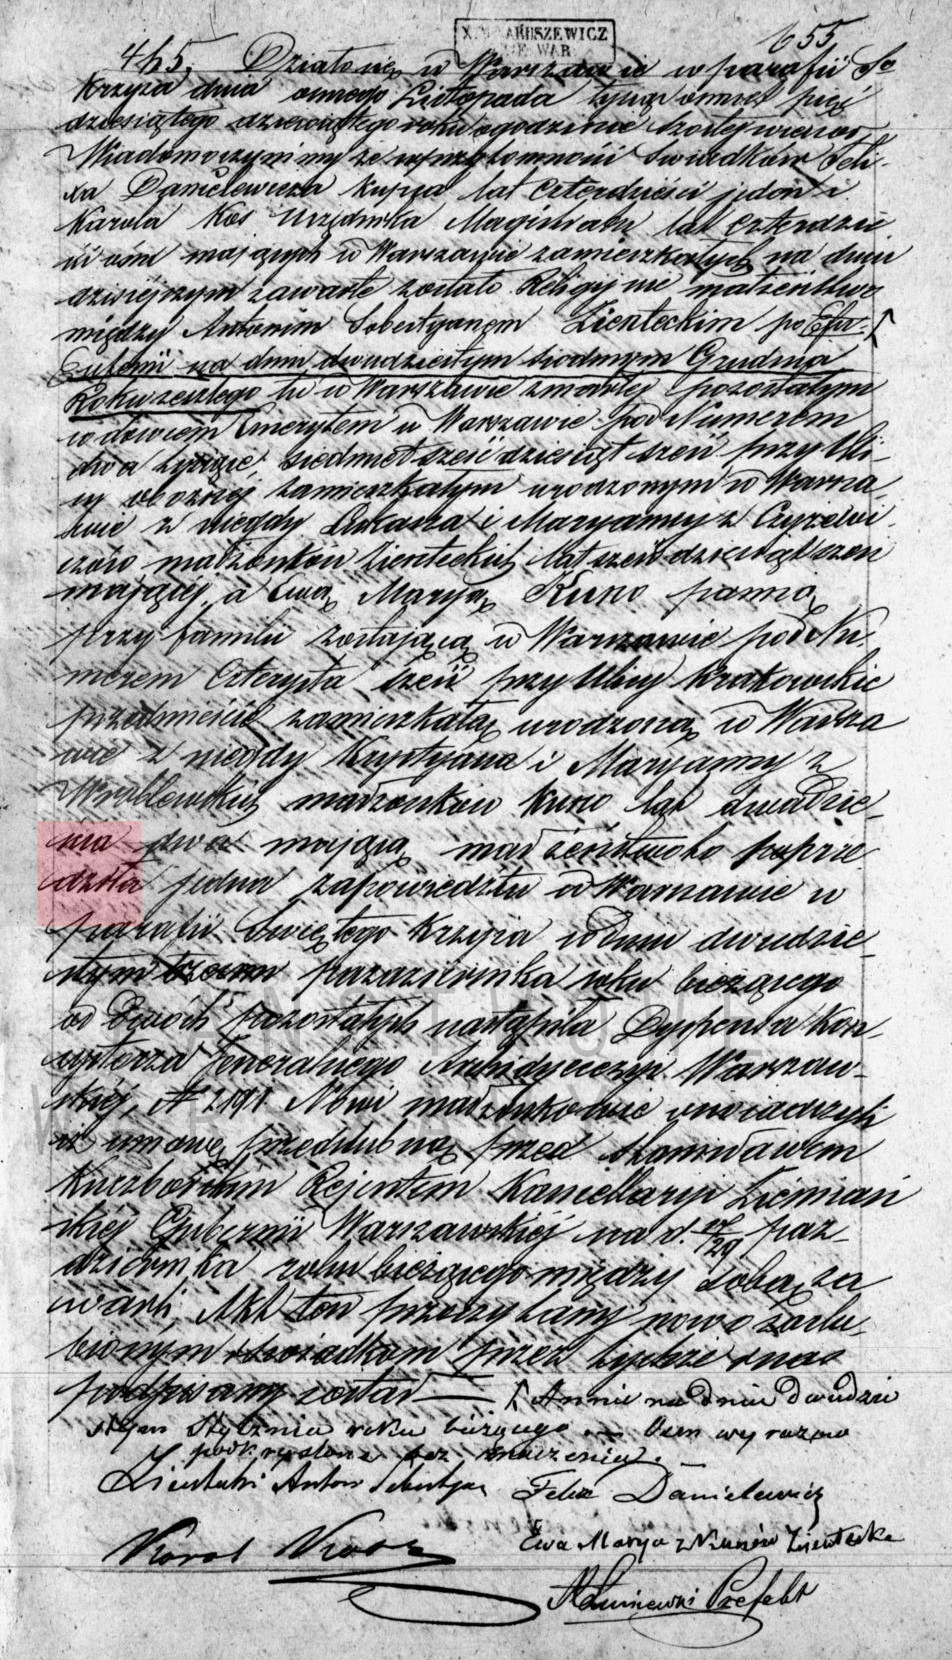 655
465. Działo się w Warszawie w parafii Sgo
Krzyża dnia osmego Listopada tysiąc ośmset pięć
dziesiątego dziewiątego roku o godzinie szóstej wieczor,
Wiadomo czynimy że w przytomności Swiadków Feli-
xa Danielewicza kupca lat czterdzieści jeden i
Karola Urzędnika Magistratu lat czterdzie
ści ośm mających w Warszawie zamieszkałych na dniu
dzisiejszym zawarte zostało Religijnie małżeństwo
między Antonim Sebestyanem Zienteckim po
Eufemii na dniu dwudziestym siódmym Grudnia
Roku zeszłego tu w Warszawie zmarłej pozostałym
wdowcem Emerytem w Warszawie pod Numerem
dwa tysiące siedmset sześćdziesiąt sześć przy Uli-
cy zamieszkałym urodzonym w Warsza
wie z niegdy Łukasza i Maryanny z
małżonków Zienteckich lat sześćdziesiąt sześć
mającej, a Ewą Maryą Kuno panną
przy familii zostającą w Warszawie pod Nu-
merem Czterysta sześć przy Ulicy Krakowskie
przedmieście zamieszkałą urodzoną w Warsza
wie z niegdy Krystyana i Maryanny z
Wróblewskich małżonków Kuno lat dwadzie-
ścia dwa mającą małżeństwo to poprze
dziła jedna zapowiedź tu w Warszawie w
parafii Świętego Krzyża w dniu dwudzie-
stym trzecim października roku bieżącego
od dwóch pozostałych nastąpiła Dyspensa Kon-
systorza Jeneralnego Archidyecezyi Warszaw-
skiej, N 2191 Nowi małżonkowie oświadczyli
iż umowę przedślubną przed Stanisławem
Rejentem Kancellaryi Ziemiań
skiej Gubernii Warszawskiej na d. 17/29 paź-
dziernika roku bieżącego między sobą za
warli, Akt ten przeczytany nowo zaślu-
bionym i świadkom przez tychże i nas
podpisany został — Annie na dniu dwudzie
stym Stycznia roku bieżącego — Osm wyrazów
podkreślone bez znaczenia.
Zientecki Antoni Sebestyan Felix Danielewicz
Karol Ewa Marya z Kunów Zientecka
Prefekt